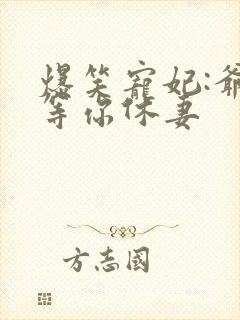 爆笑寵妃:爺
等你休妻
方志國